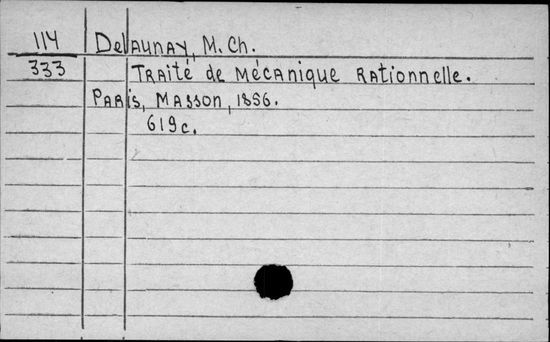 114 Delaunay, M. Ch.
333 Traité de mécanique rationnelle.
Paris, Masson, 1856.
619c.